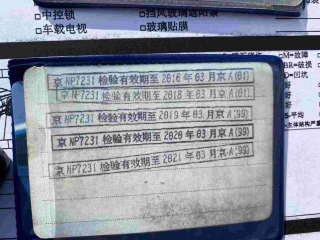 □中控锁
□车载电视
□挡风玻璃遮阳条
□玻璃贴膜
京NP7231检验有效期至2016年03月京A(01)
京NP7231检验有效期至2018年03月京A(01)
京NP7231检验有效期至2019年03月京A(99)
京NP7231检验有效期至2020年03月京A(99)
京NP7231检验有效期至2021年03月京A(99)
M=故障
BR=破损
D=凹坑